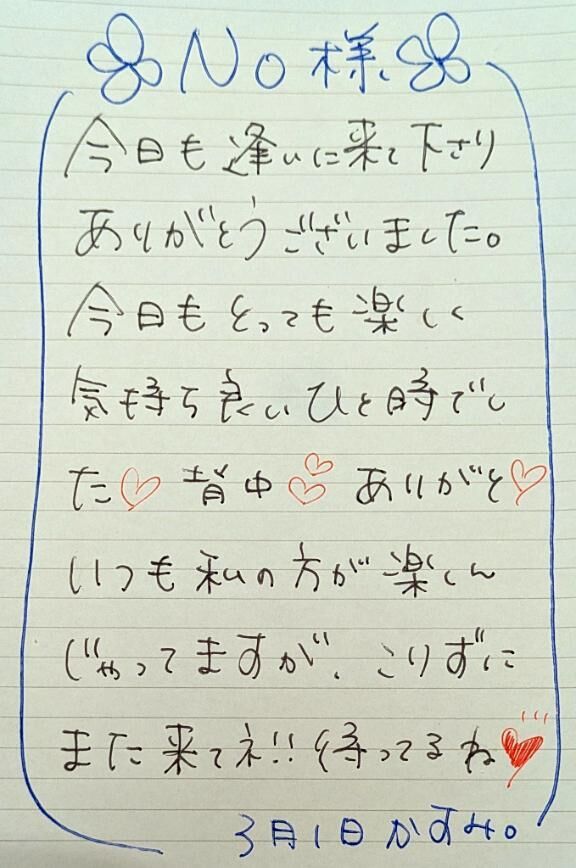 No様
今日も逢いに来て下さり
ありがとうございました。
今日もとっても楽しく
気持ち良いひと時でし
た♡背中♡♡ありがと♡
いつも私の方が楽しん
じゃってますが、こりずに
また来てネ!!待ってるね♥
3月1日かすみ。